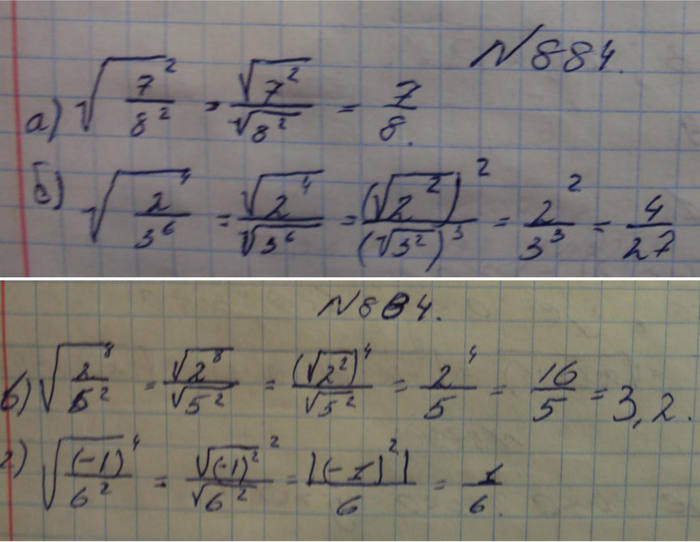 №884.
а) √(7²/8²) = √7²/√8² = 7/8.
б) √(2⁴/3⁶) = √2⁴/√3⁶ = (√2²)²/(√3²)³ = 2²/3³ = 4/27
№884.
в) √(2⁸/5²) = √2⁸/√5² = (√2²)⁴/√5² = 2⁴/5 = 16/5 = 3,2.
г) √((-1)⁴/6²) = √(-1)²²/√6² = |(-1)²|/6 = 1/6.